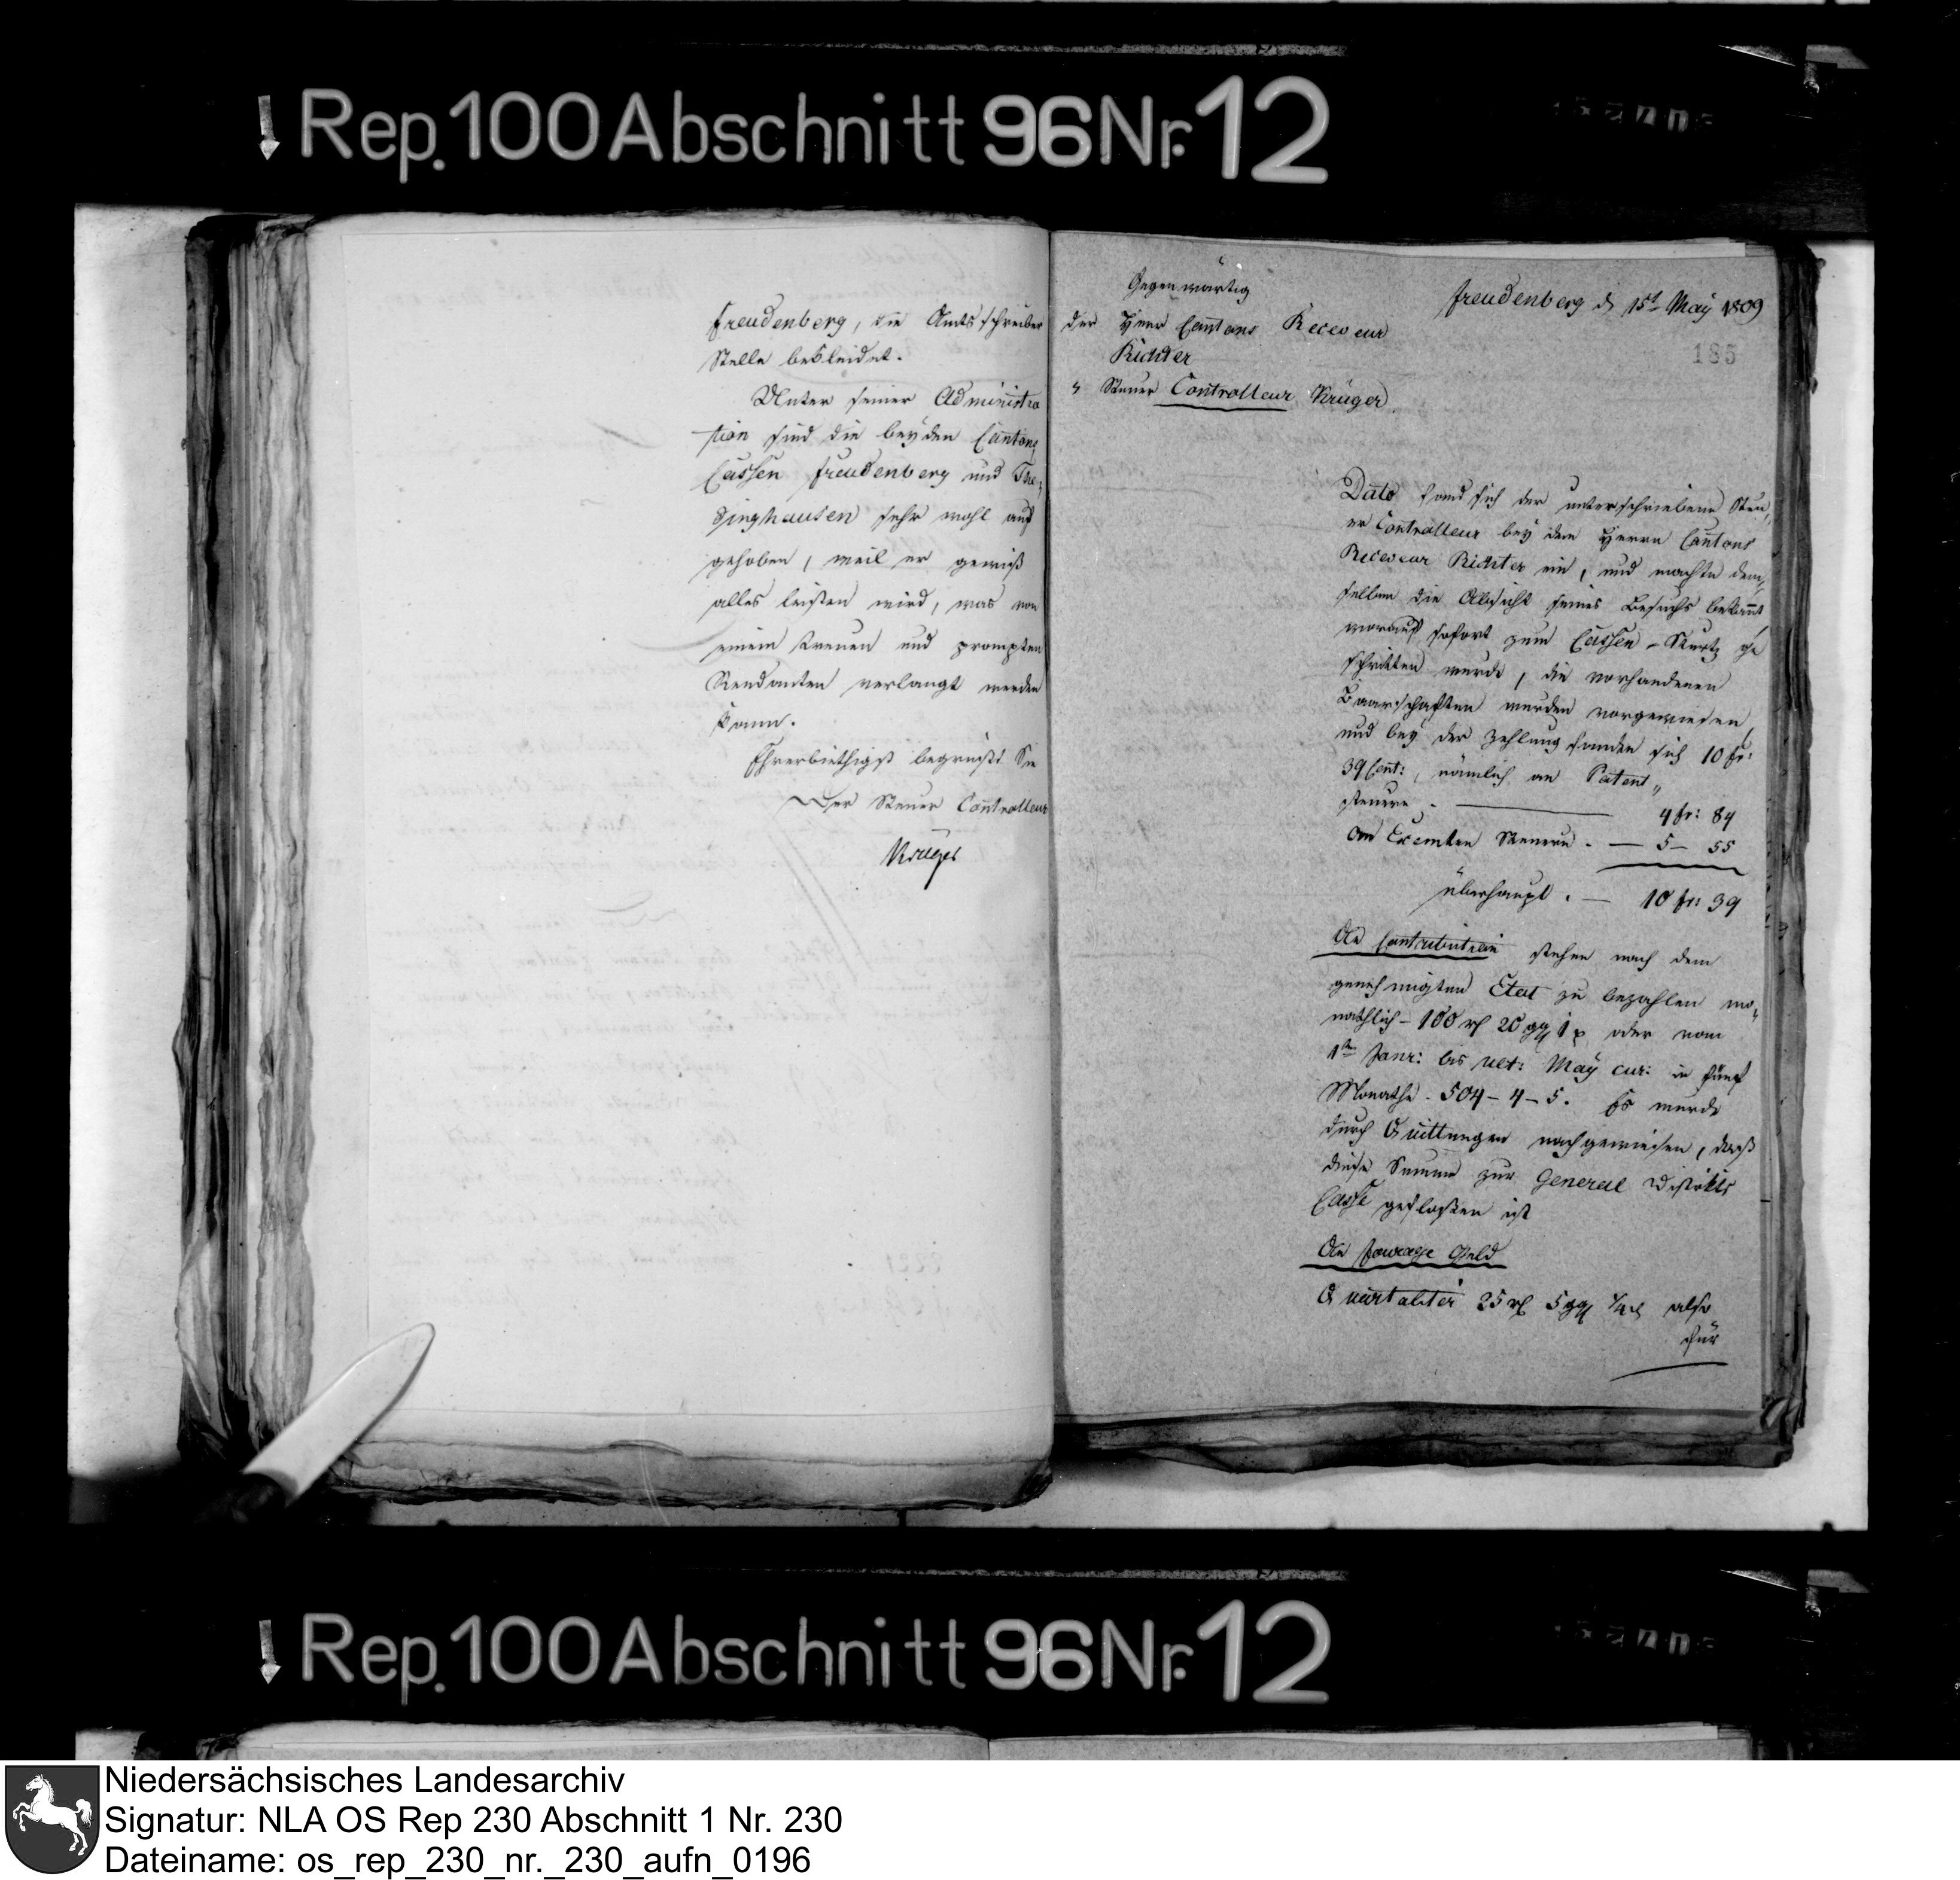 Rep. 100 Abschnitt 96 Nr. 12
Freudenberg, die Amtsschreiber
Stelle bekleidet.
Unter seiner Administra
tion sind die beyden Cantons
Cassen Freudenberg und The,
dinghausen sehr wohl auf
gehoben, weil er gewiß
alles leisten wird, was von
einem treuen und prompten
Rendanten verlangt werden
kann.
Ehrerbiethigst begrüßt Sie
Der Steuer Controlleur
Krüger
Gegenwärtig
der Herr Cantons Receveur
Richter
" Steuer Controlleur Krüger
Freudenberg d 15t May 1809
185
Dato fand sich der unterschriebene Steu,,
er Controlleur bey dem Herrn Cantons
Receveur Richter ein, und machte dem,,
selben die Absicht seines Besuchs bekannt
worauf sofort zum Cassen-Sturtz ge
schritten wurde, die vorhandenen
Baarschaften wurden vorgewiesen,
und bey der Zehlung fanden sich 10 fr:
39 Cent:, nämlich an Patent,,
steuern . — 4 fr: 84
an Exemten Steuern . — 5 — 55
überhaupt . — 10 fr: 39
An Contribution stehen nach dem
genehmigten Etat zu bezahlen mo,,
nathlich – 100 rh 20 ggr 1 oder vom
1ten Janr: bis ult: May cur: in fünf
Monathe . 504 – 4 – 5. Es wurde
durch Quittungen nachgewiesen, daß
diese Summe zur General Distrikts
Casse geflossen ist
An Fourage Geld
Quartaliter 25 rh 5 ggr also
für
Rep. 100 Abschnitt 96 Nr. 12
Niedersächsisches Landesarchiv
Signatur: NLA OS Rep 230 Abschnitt 1 Nr. 230
Dateiname: os_rep_230_nr._230_aufn_0196